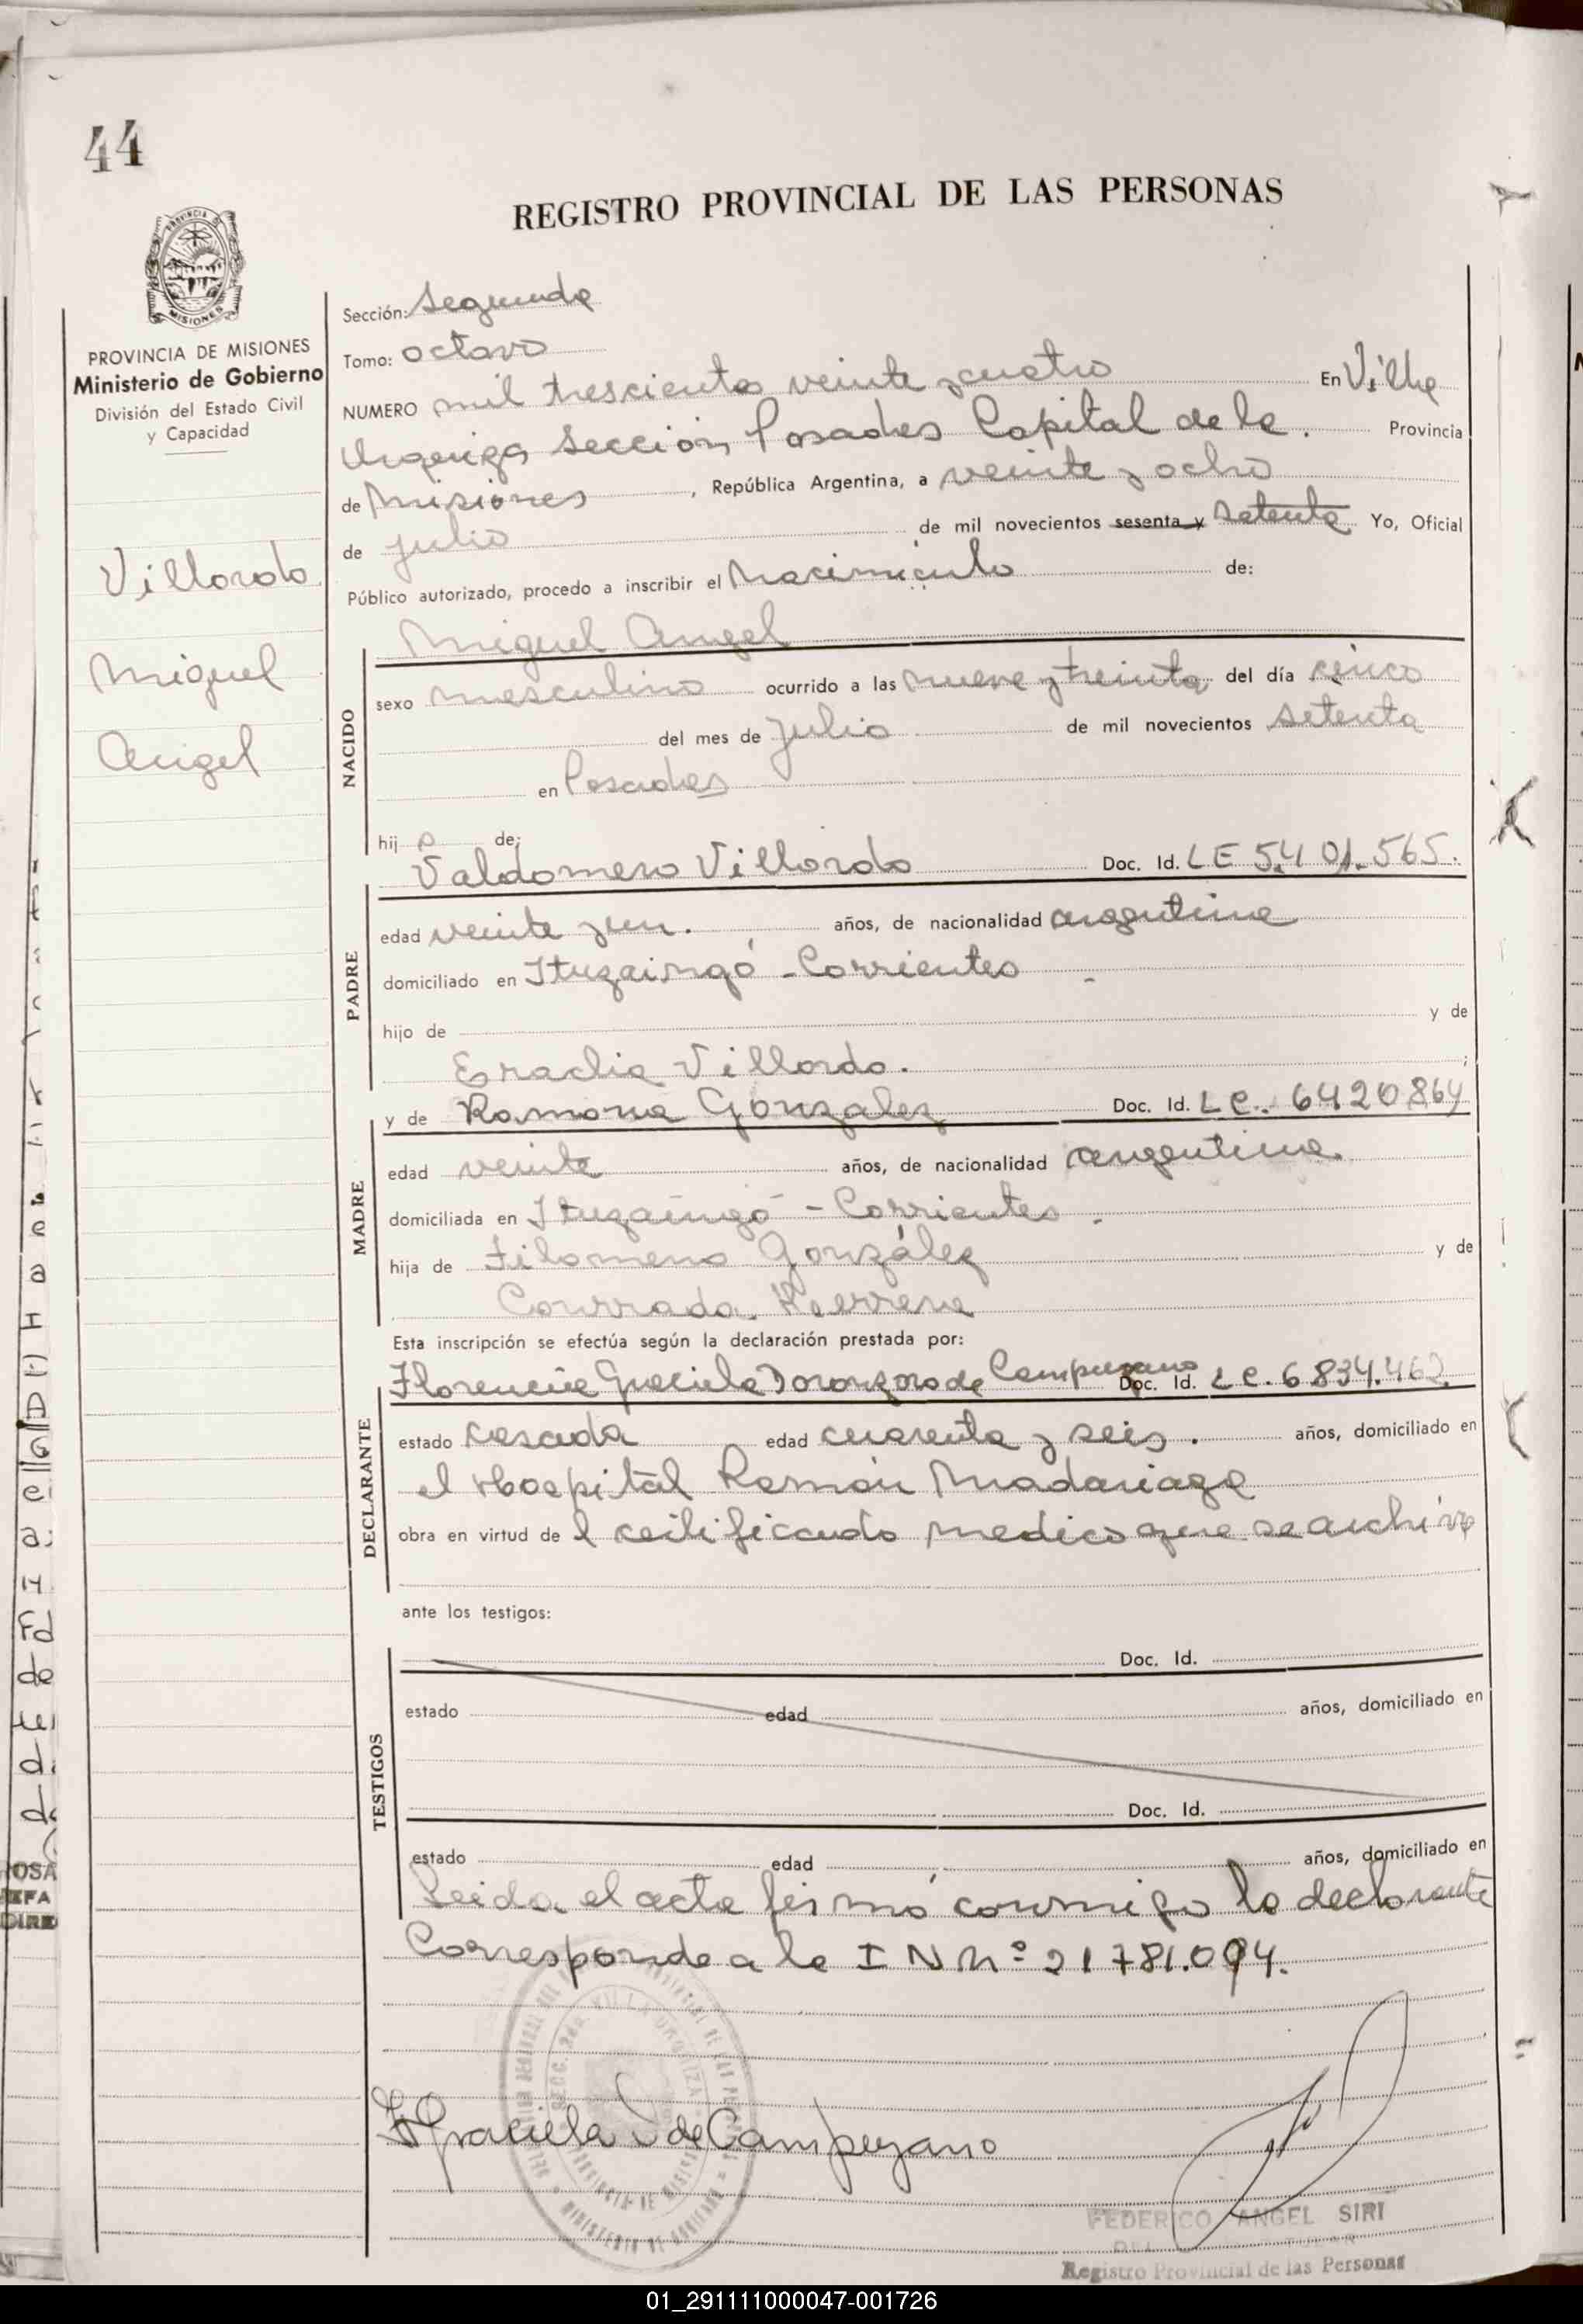 44
REGISTRO PROVINCIAL DE LAS PERSONAS
MISIONES
PROVINCIA DE MISIONES
Ministerio de Gobierno
División del Estado Civil
y Capacidad
Villordo
Miguel
Angel
Sección: Segunda
Tomo: octavo
NUMERO mil trescientos veinte y cuatro En Villa
Urquiza Sección, Posadas Capital de la. Provincia
de Misiones, República Argentina, a veinte y ocho
de julio de mil novecientos sesenta y setenta Yo, Oficial
Público autorizado, procedo a inscribir el Nacimiento de:
Miguel Angel
NACIDO
sexo masculino ocurrido a las nueve y treinta del día cinco
del mes de julio de mil novecientos setenta
en Posadas
hijo de:
Valdomero Villordo Doc. Id. LE 5.401.565.
PADRE
edad veinte y un. años, de nacionalidad argentina
domiciliado en Ituzaingó - Corrientes
hijo de y de
Eraclia Villordo.
y de Ramona Gonzalez Doc. Id. LC. 6420864
MADRE
edad veinte años, de nacionalidad argentina.
domiciliada en Ituzaingó - Corrientes.
hija de Filomeno González y de
Conrrada
Esta inscripción se efectúa según la declaración prestada por:
Graciela de Campuzano Doc. Id. LC. 6834.462
DECLARANTE
estado casada edad cuarenta y seis. años, domiciliado en
el Hospital Ramón Madariaga
obra en virtud del certificado medico que se archiva
ante los testigos:
TESTIGOS
Doc. Id.
estado edad años, domiciliado en
Doc. Id.
estado edad años, domiciliado en
Leida el acta firmó conmigo la declarante
Corresponde a la I N Nº 21781.094.
Graciela de Campuzano
FEDERICO ANGEL SIRI
Registro Provincial de las Personas
01_291111000047-001726